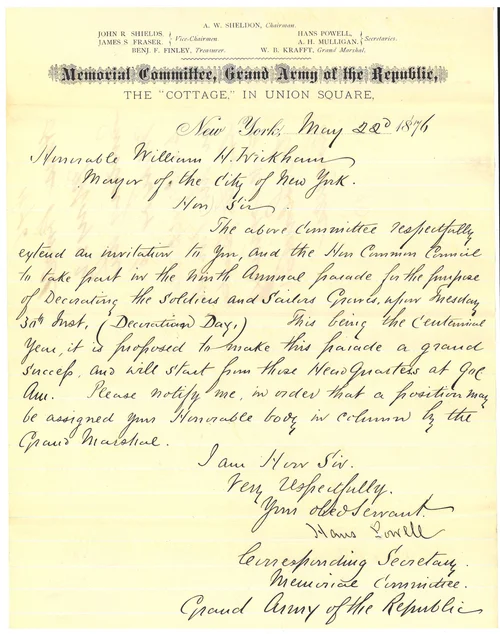 A. W. SHELDON, Chairman.
JOHN R SHIELDS,
JAMES S FRASER,
Vice-Chairmen
HANS POWELL,
A. H. MULLIGAN,
Secretaries.
BENJ. F. FINLEY, Treasurer.
W. B. KRAFFT, Grand Marshal.
Memorial Committee, Grand Army of the Republic,
THE "COTTAGE," IN UNION SQUARE,
New York, May 22d 1876
Honorable William H. Wickham
Mayor of the City of New York.
Hon Sir
The above Committee respectfully
extend an invitation to You, and the Hon Common Council
to take part in the ninth Annual parade for the purpose
of Decorating the Soldiers and Sailors Graves, upon Tuesday
30th Inst, (Decoration Day,) This being the Centennial
Year, it is proposed to make this parade a grand
success, and will start from these Head Quarters at
Am. Please notify me, in order that a position may
be assigned your Honorable body in column by the
Grand Marshal.
I am Hon Sir.
Very Respectfully.
Your obed servant.
Hans Powell
Corresponding Secretary.
Memorial Committee.
Grand Army of the Republic